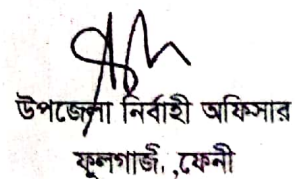 উপজেলা নির্বাহী অফিসার
ফুলগাজী, ফেনী